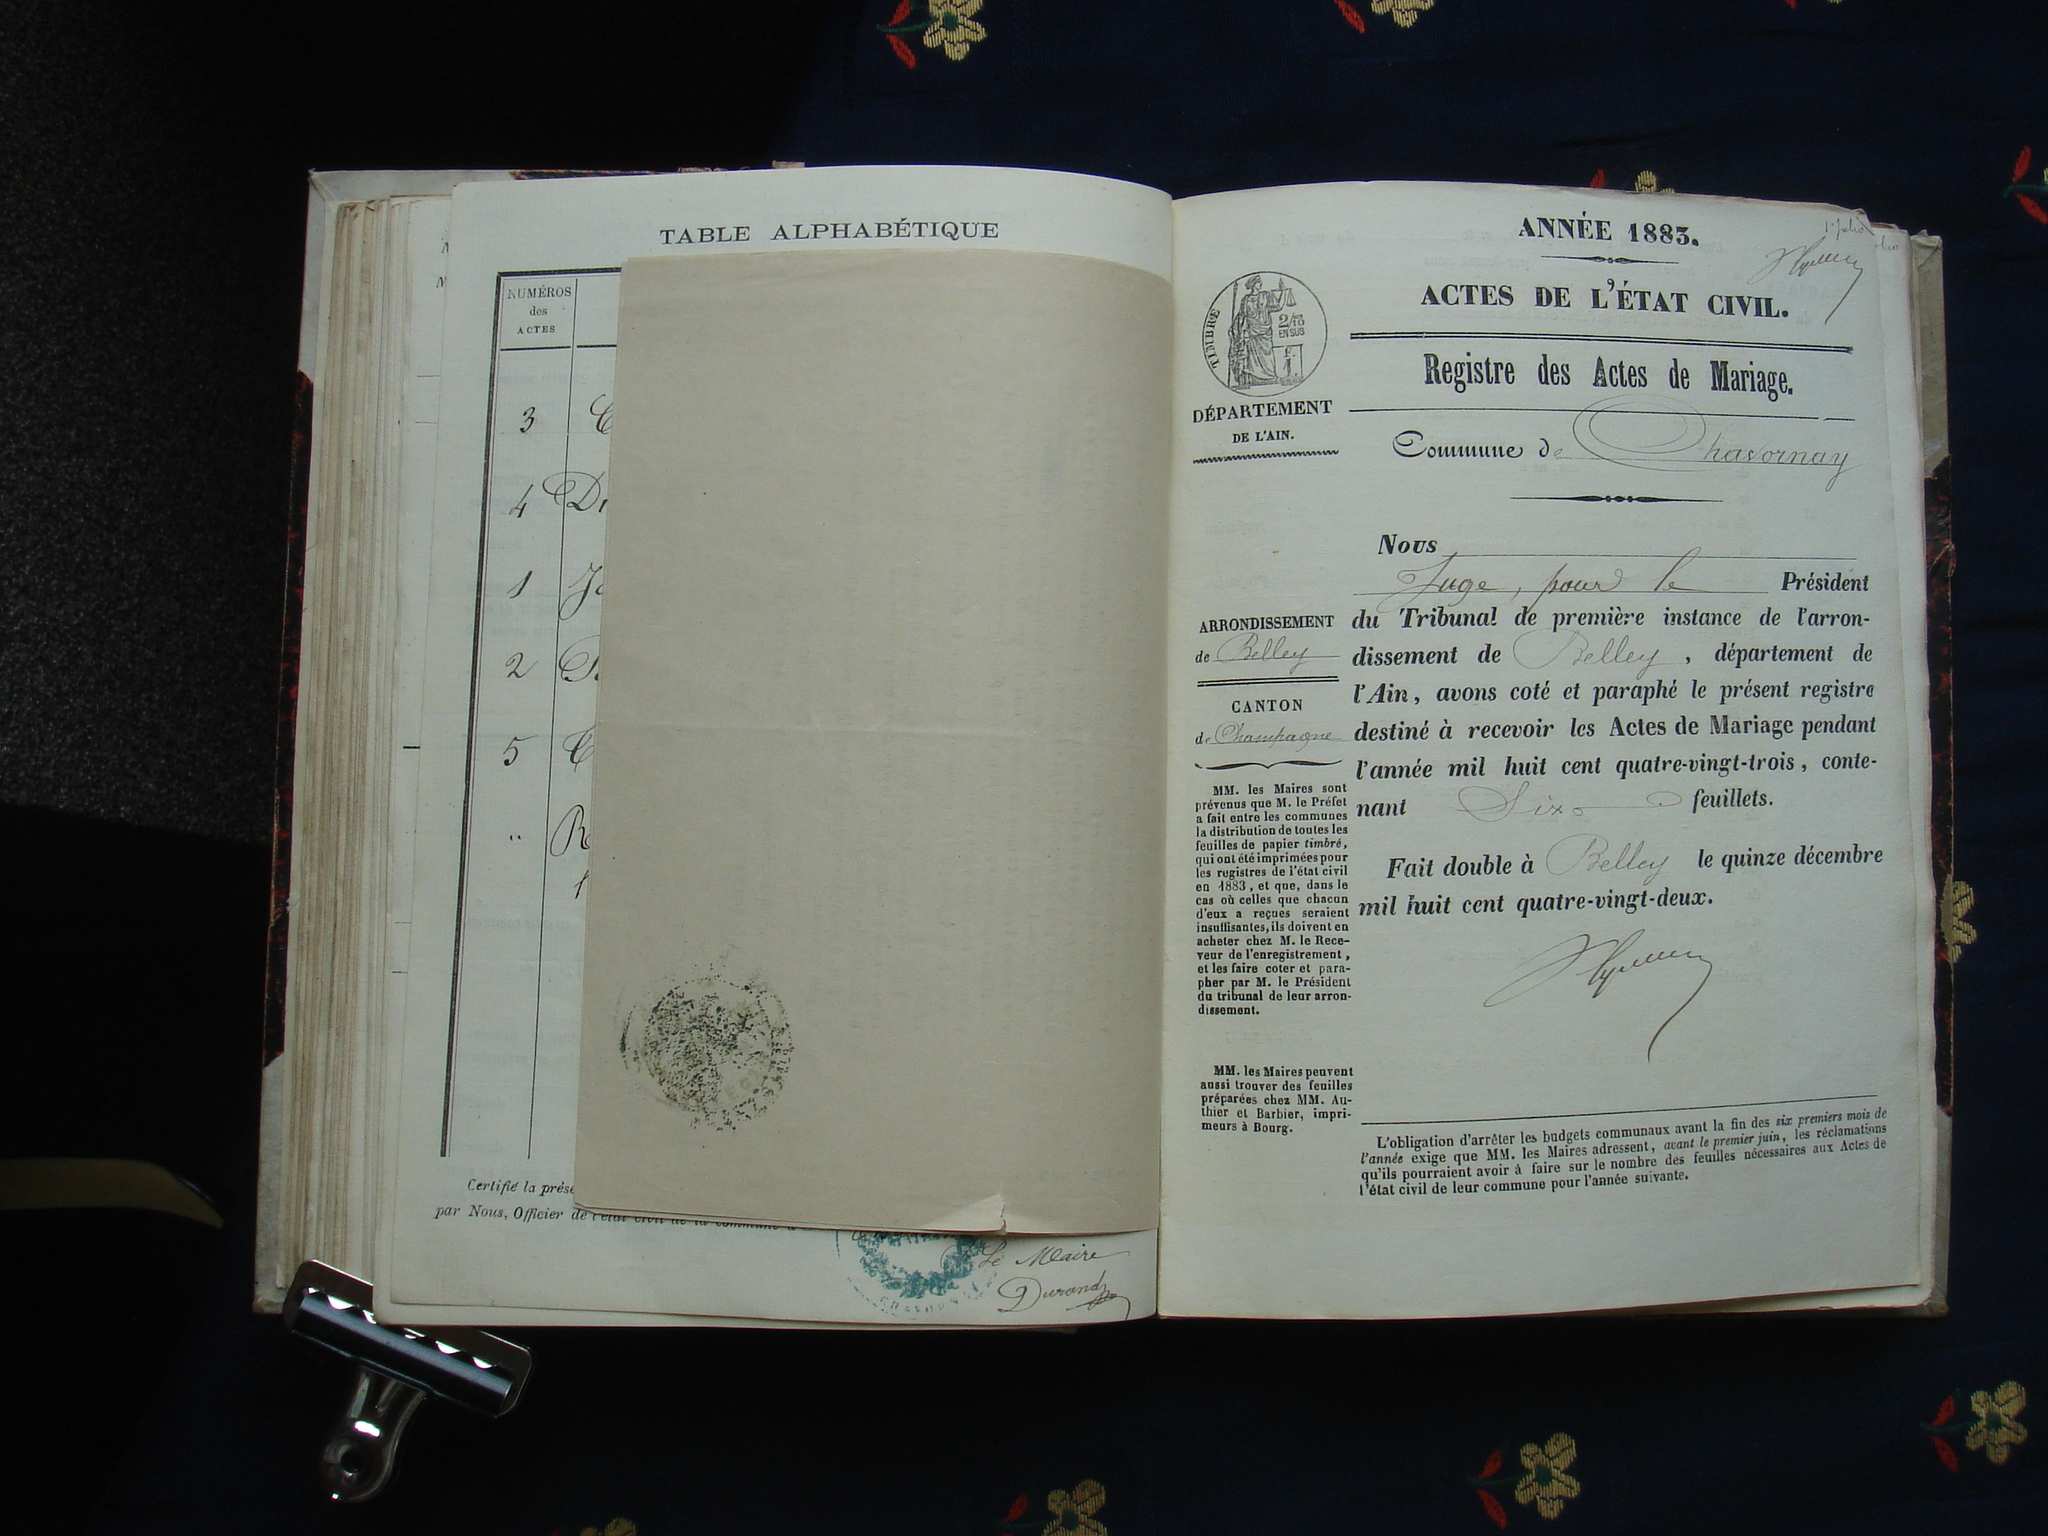 TABLE ALPHABÉTIQUE
NUMÉROS
des
ACTES
3
4
1
2
5
"
Certifié la prése
par Nous, Officier de l'état civil de la commune
Le Maire
Durand
ANNÉE 1883.
ACTES DE L'ÉTAT CIVIL.
TIMBRE
2/10
EN SUS
Registre des Actes de Mariage.
DÉPARTEMENT
DE L'AIN.
Commune de Chavornay
Nous
Juge, pour le Président
du Tribunal de première instance de l'arron-
dissement de Belley, département de
l'Ain, avons coté et paraphé le présent registre
destiné à recevoir les Actes de Mariage pendant
l'année mil huit cent quatre-vingt-trois, conte-
nant Six feuillets.
Fait double à Belley le quinze décembre
mil huit cent quatre-vingt-deux.
ARRONDISSEMENT
de Belley
CANTON
de Champagne
MM. les Maires sont
prévenus que M. le Préfet
a fait entre les communes
la distribution de toutes les
feuilles de papier timbré,
qui ont été imprimées pour
les registres de l'état civil
en 1883, et que, dans le
cas où celles que chacun
d'eux a reçues seraient
insuffisantes, ils doivent en
acheter chez M. le Rece-
veur de l'enregistrement,
et les faire coter et para-
pher par M. le Président
du tribunal de leur arron-
dissement.
MM. les Maires peuvent
aussi trouver des feuilles
préparées chez MM. Au-
thier et Barbier, impri-
meurs à Bourg.
L'obligation d'arrêter les budgets communaux avant la fin des six premiers mois de
l'année exige que MM. les Maires adressent, avant le premier juin, les réclamations
qu'ils pourraient avoir à faire sur le nombre des feuilles nécessaires aux Actes de
l'état civil de leur commune pour l'année suivante.